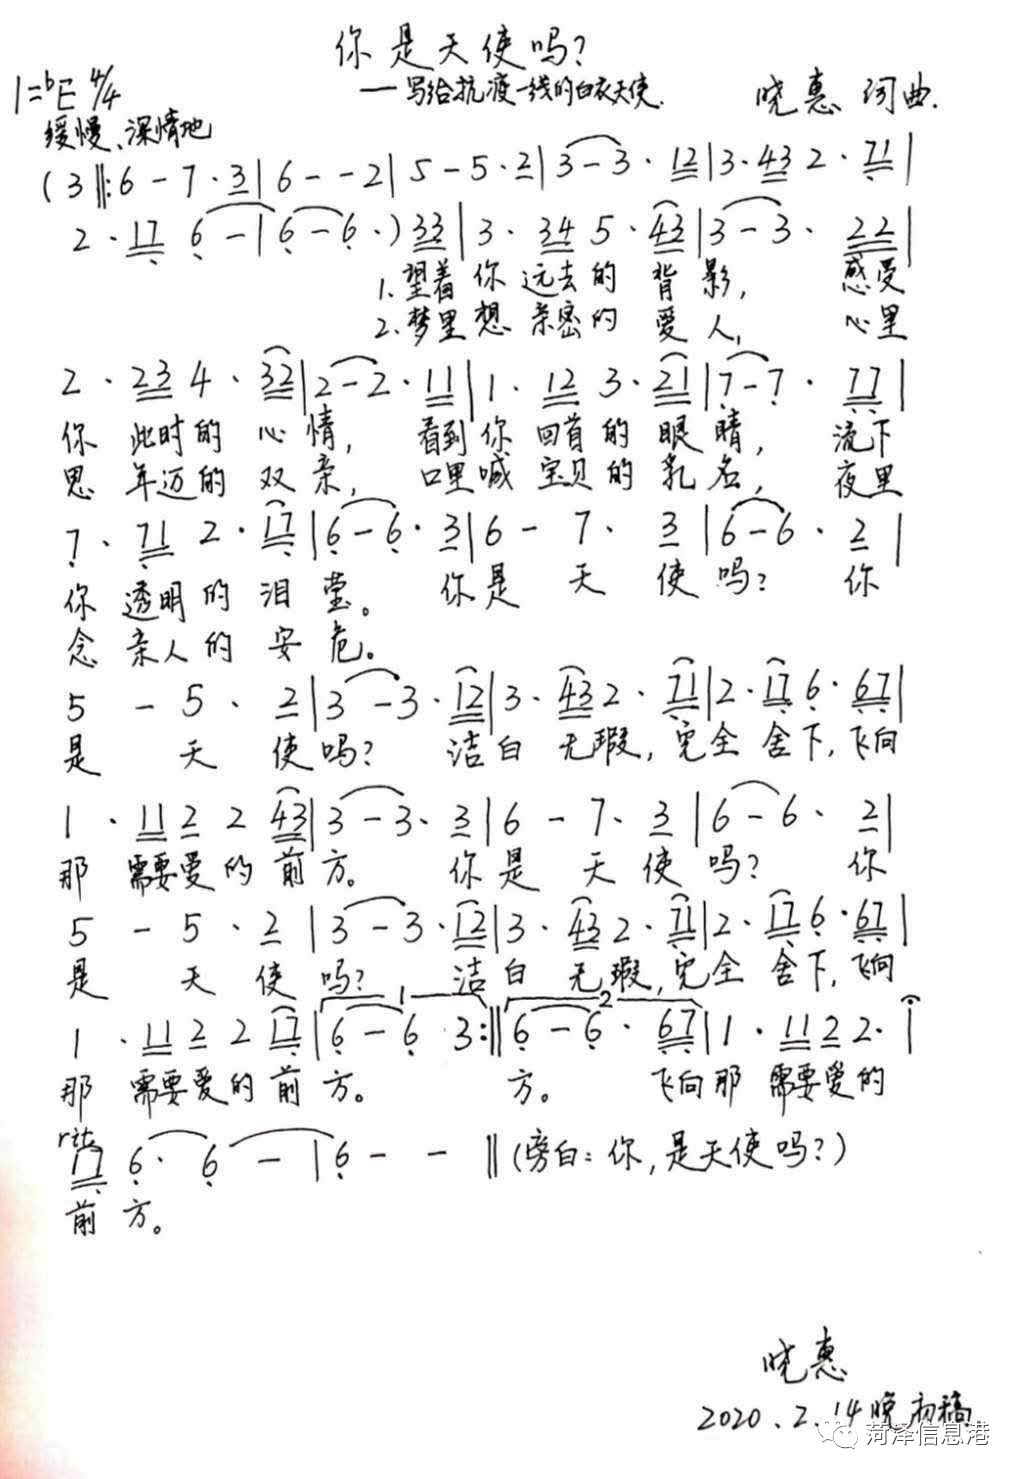 你是天使吗?
1=ᵇE 4/4
——写给抗疫一线的白衣天使.
晓惠 词曲.
缓慢、深情地
(3‖:6 - 7 · 3|6 - - 2|5 - 5 · 2|3 - 3 · 12|3 · 43 2 · 71|
2 · 17 6 - |6 - 6 ·) 33|3 · 34 5 · 43|3 - 3 · 22|
1.望着你 远去的 背影, 感受
2.梦里想 亲密的 爱人, 心里
2 · 23 4 · 32|2 - 2 · 11|1 · 12 3 · 21|7 - 7 · 77|
你 此时的 心情, 看到你 回首的 眼睛, 流下
思 年迈的 双亲, 口里喊 宝贝的 乳名, 夜里
7 · 71 2 · 17|6 - 6 · 3|6 - 7 · 3|6 - 6 · 2|
你 透明的 泪莹。 你是 天 使吗? 你
念 亲人的 安危。
5 - 5 · 2|3 - 3 · 12|3 · 43 2 · 71|2 · 17 6 · 67|
是 天 使吗? 洁白 无瑕,完全 舍下,飞向
1 · 11 2 2 43|3 - 3 · 3|6 - 7 · 3|6 - 6 · 2|
那 需要爱的 前方。 你是 天使 吗? 你
5 - 5 · 2|3 - 3 · 12|3 · 43 2 · 71|2 · 17 6 · 67|
是 天 使 吗? 洁白 无瑕,完全 舍下,飞向
1 2
1 · 11 2 2 17|6 - 6 3:‖6 - 6 · 67|1 · 11 2 2 · 1
那 需要爱的 前方。 方。 飞向那 需要爱的
rit
17 6 · 6 - |6 - - ‖(旁白:你,是天使吗?)
前方。
晓惠
2020.2.14晚初稿
菏泽信息港